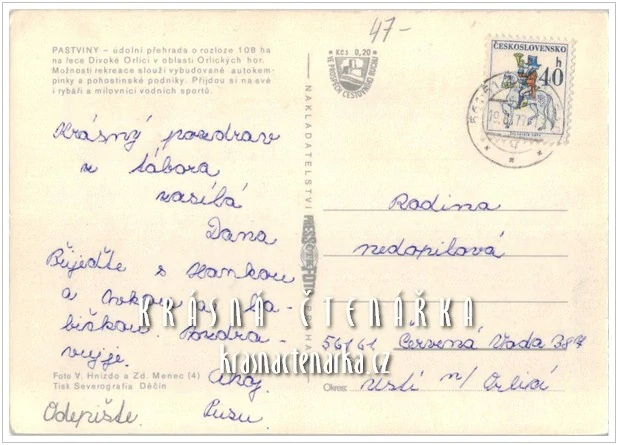 47-
PASTVINY – údolní přehrada o rozloze 108 ha
na řece Divoké Orlici v oblasti Orlických hor.
Možnosti rekreace slouží vybudované autokem-
pinky a pohostinské podniky. Přijdou si na své
i rybáři a milovníci vodních sportů.
Kčs 0,20
VE PROSPĚCH CESTOVNÍHO RUCHU
ČESKOSLOVENSKO
40 h
NAKLADATELSTVÍ
PRAHA
Krásný pozdrav
z tábora
zasílá
Dana
Přijeďte s Hankou
a
biškou. Pozdra-
vuje.
Ahoj
Pusu.
Odepište.
Rodina
nedopilová
56161 Červená Voda
Okres: Ústí n/ Orlicí
Foto V. Hnízdo a Zd. Menec (4)
Tisk Severografia Děčín
KRÁSNÁ ČTENÁŘKA
krasnactenarka.cz